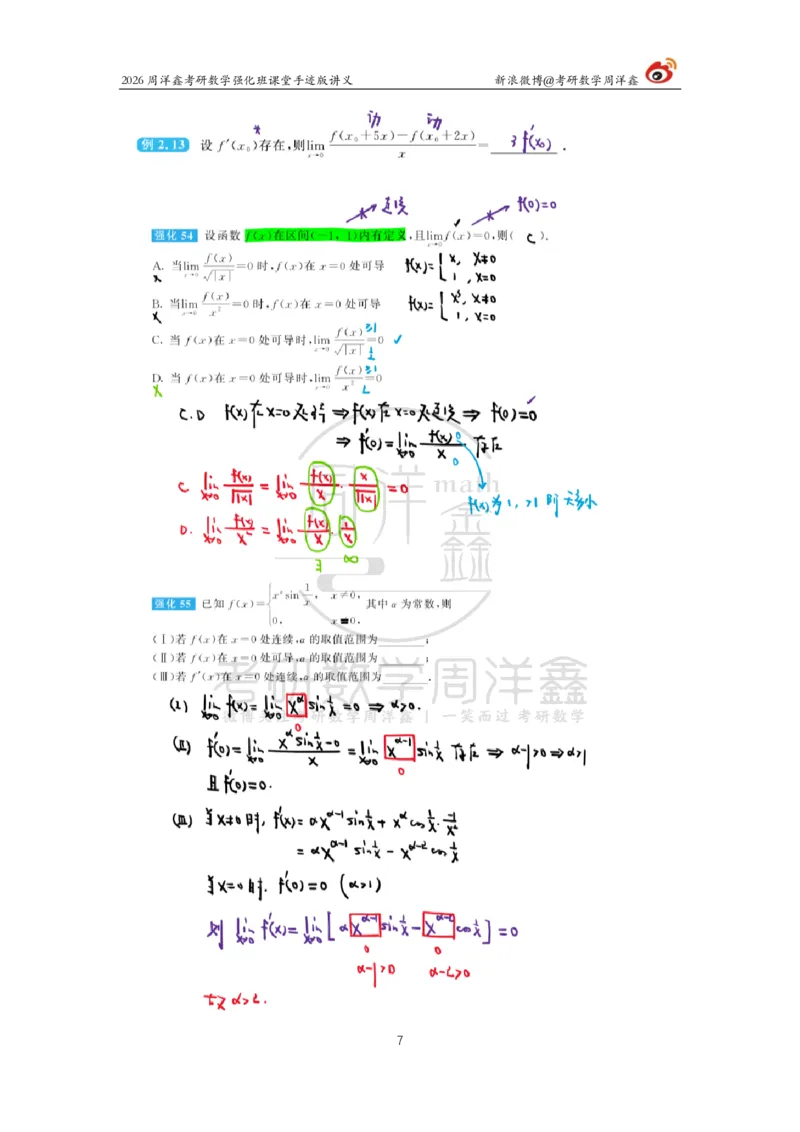 2026 周洋鑫考研数学强化班课堂手迹版讲义 新浪微博@考研数学周洋鑫
动 动
例 2.13 设 f′(x₀)存在,则lim_{x→0} [f(x₀+5x)−f(x₀+2x)]/x = 3f′(x₀) .
连续 f(0)=0
强化 54 设函数 f(x)在区间(−1, 1)内有定义,且lim_{x→0} f(x)=0,则( C ).
A. 当lim_{x→0} f(x)/√|x| =0 时,f(x)在 x=0 处可导 f(x)={x, x≠0
1, x=0
B. 当lim_{x→0} f(x)/x² =0 时,f(x)在 x=0 处可导 f(x)={x³, x≠0
1, x=0
C. 当 f(x)在 x=0 处可导时,lim_{x→0} f(x)/√|x| =0 ✓
D. 当 f(x)在 x=0 处可导时,lim_{x→0} f(x)/x² =0
C.D f(x)在x=0处可导 ⇒ f(x)在x=0处连续 ⇒ f(0)=0
⇒ f′(0)=lim_{x→0} f(x)/x 存在
f(x)为1, >1 阶无穷小
C lim_{x→0} f(x)/√|x| = lim_{x→0} f(x)/x · x/√|x| = 0
D. lim_{x→0} f(x)/x² = lim_{x→0} f(x)/x · 1/x
∃ ∞
强化 55 已知 f(x)={x^α sin 1/x, x≠0,
0, x=0, 其中 α 为常数,则
(Ⅰ)若 f(x)在 x=0 处连续,α 的取值范围为______;
(Ⅱ)若 f(x)在 x=0 处可导,α 的取值范围为______;
(Ⅲ)若 f′(x)在 x=0 处连续,α 的取值范围为______.
考研数学周洋鑫
(Ⅰ) lim_{x→0} f(x)=lim_{x→0} x^α sin 1/x =0 ⇒ α>0.
0
(Ⅱ) f′(0)=lim_{x→0} (x^α sin 1/x −0)/x = lim_{x→0} x^{α−1} sin 1/x 存在 ⇒ α−1>0 ⇒ α>1
0
且 f′(0)=0.
(Ⅲ) 当x≠0时, f′(x)= αx^{α−1} sin 1/x + x^α cos 1/x · −1/x²
= αx^{α−1} sin 1/x − x^{α−2} cos 1/x
当x=0时. f′(0)=0 (α>1)
则 lim_{x→0} f′(x)=lim_{x→0} [αx^{α−1} sin 1/x − x^{α−2} cos 1/x] =0
0 0
α−1>0 α−2>0
故 α>2.
7